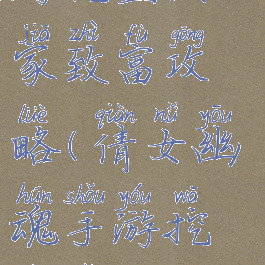 jiā zhì fù gōng
家致富攻
lüè qiàn nǚ yōu
略(倩女幽
hún shǒu yóu wā
魂手游挖